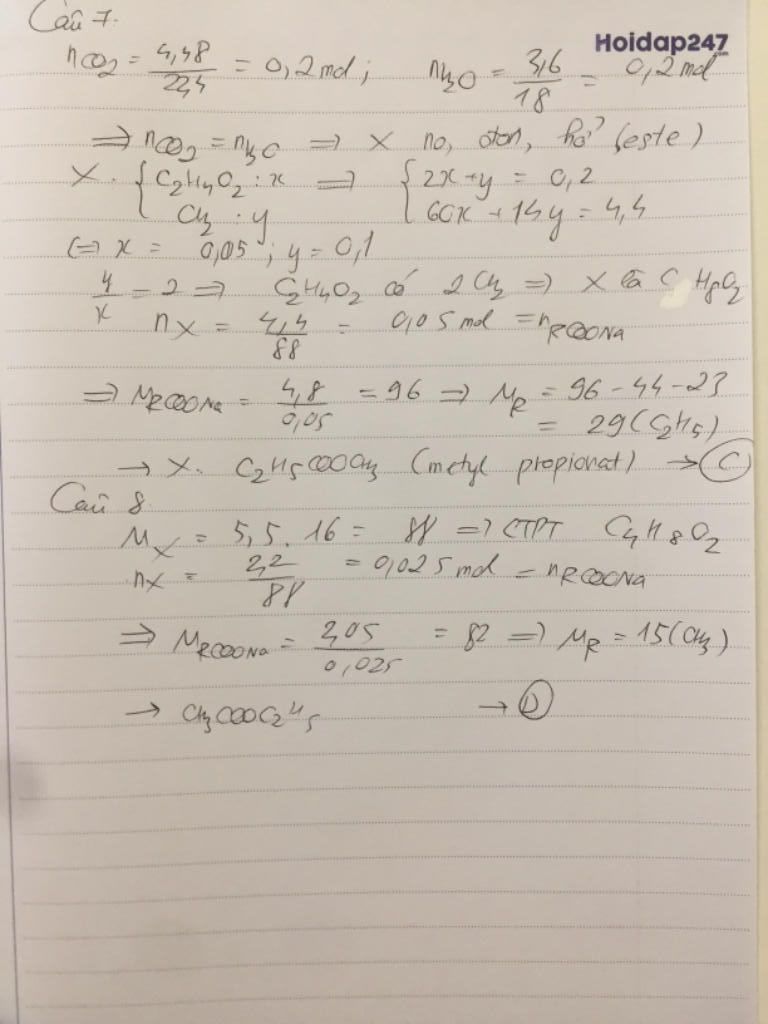 Câu 7.
Hoidap247
nCO2 = 4,48/22,4 = 0,2 mol; nH2O = 3,6/18 = 0,2 mol
=> nCO2 = nH2O => X no, đơn, hở (este)
X. { C2H4O2 : x => { 2x + y = 0,2
CH2 : y 60x + 14y = 4,4
<=> x = 0,05; y = 0,1
y/x = 2 => C2H4O2 có 2 CH2 => X là C H8O2
nX = 4,4/88 = 0,05 mol = nRCOONa
=> MRCOONa = 4,8/0,05 = 96 => MR = 96 - 44 - 23
= 29 (C2H5)
→ X. C2H5COOCH3 (metyl propionat) → C
Câu 8
MX = 5,5 . 16 = 88 => CTPT C4H8O2
nX = 2,2/88 = 0,025 mol = nRCOONa
=> MRCOONa = 2,05/0,025 = 82 => MR = 15 (CH3)
→ CH3COOC2H5 → D